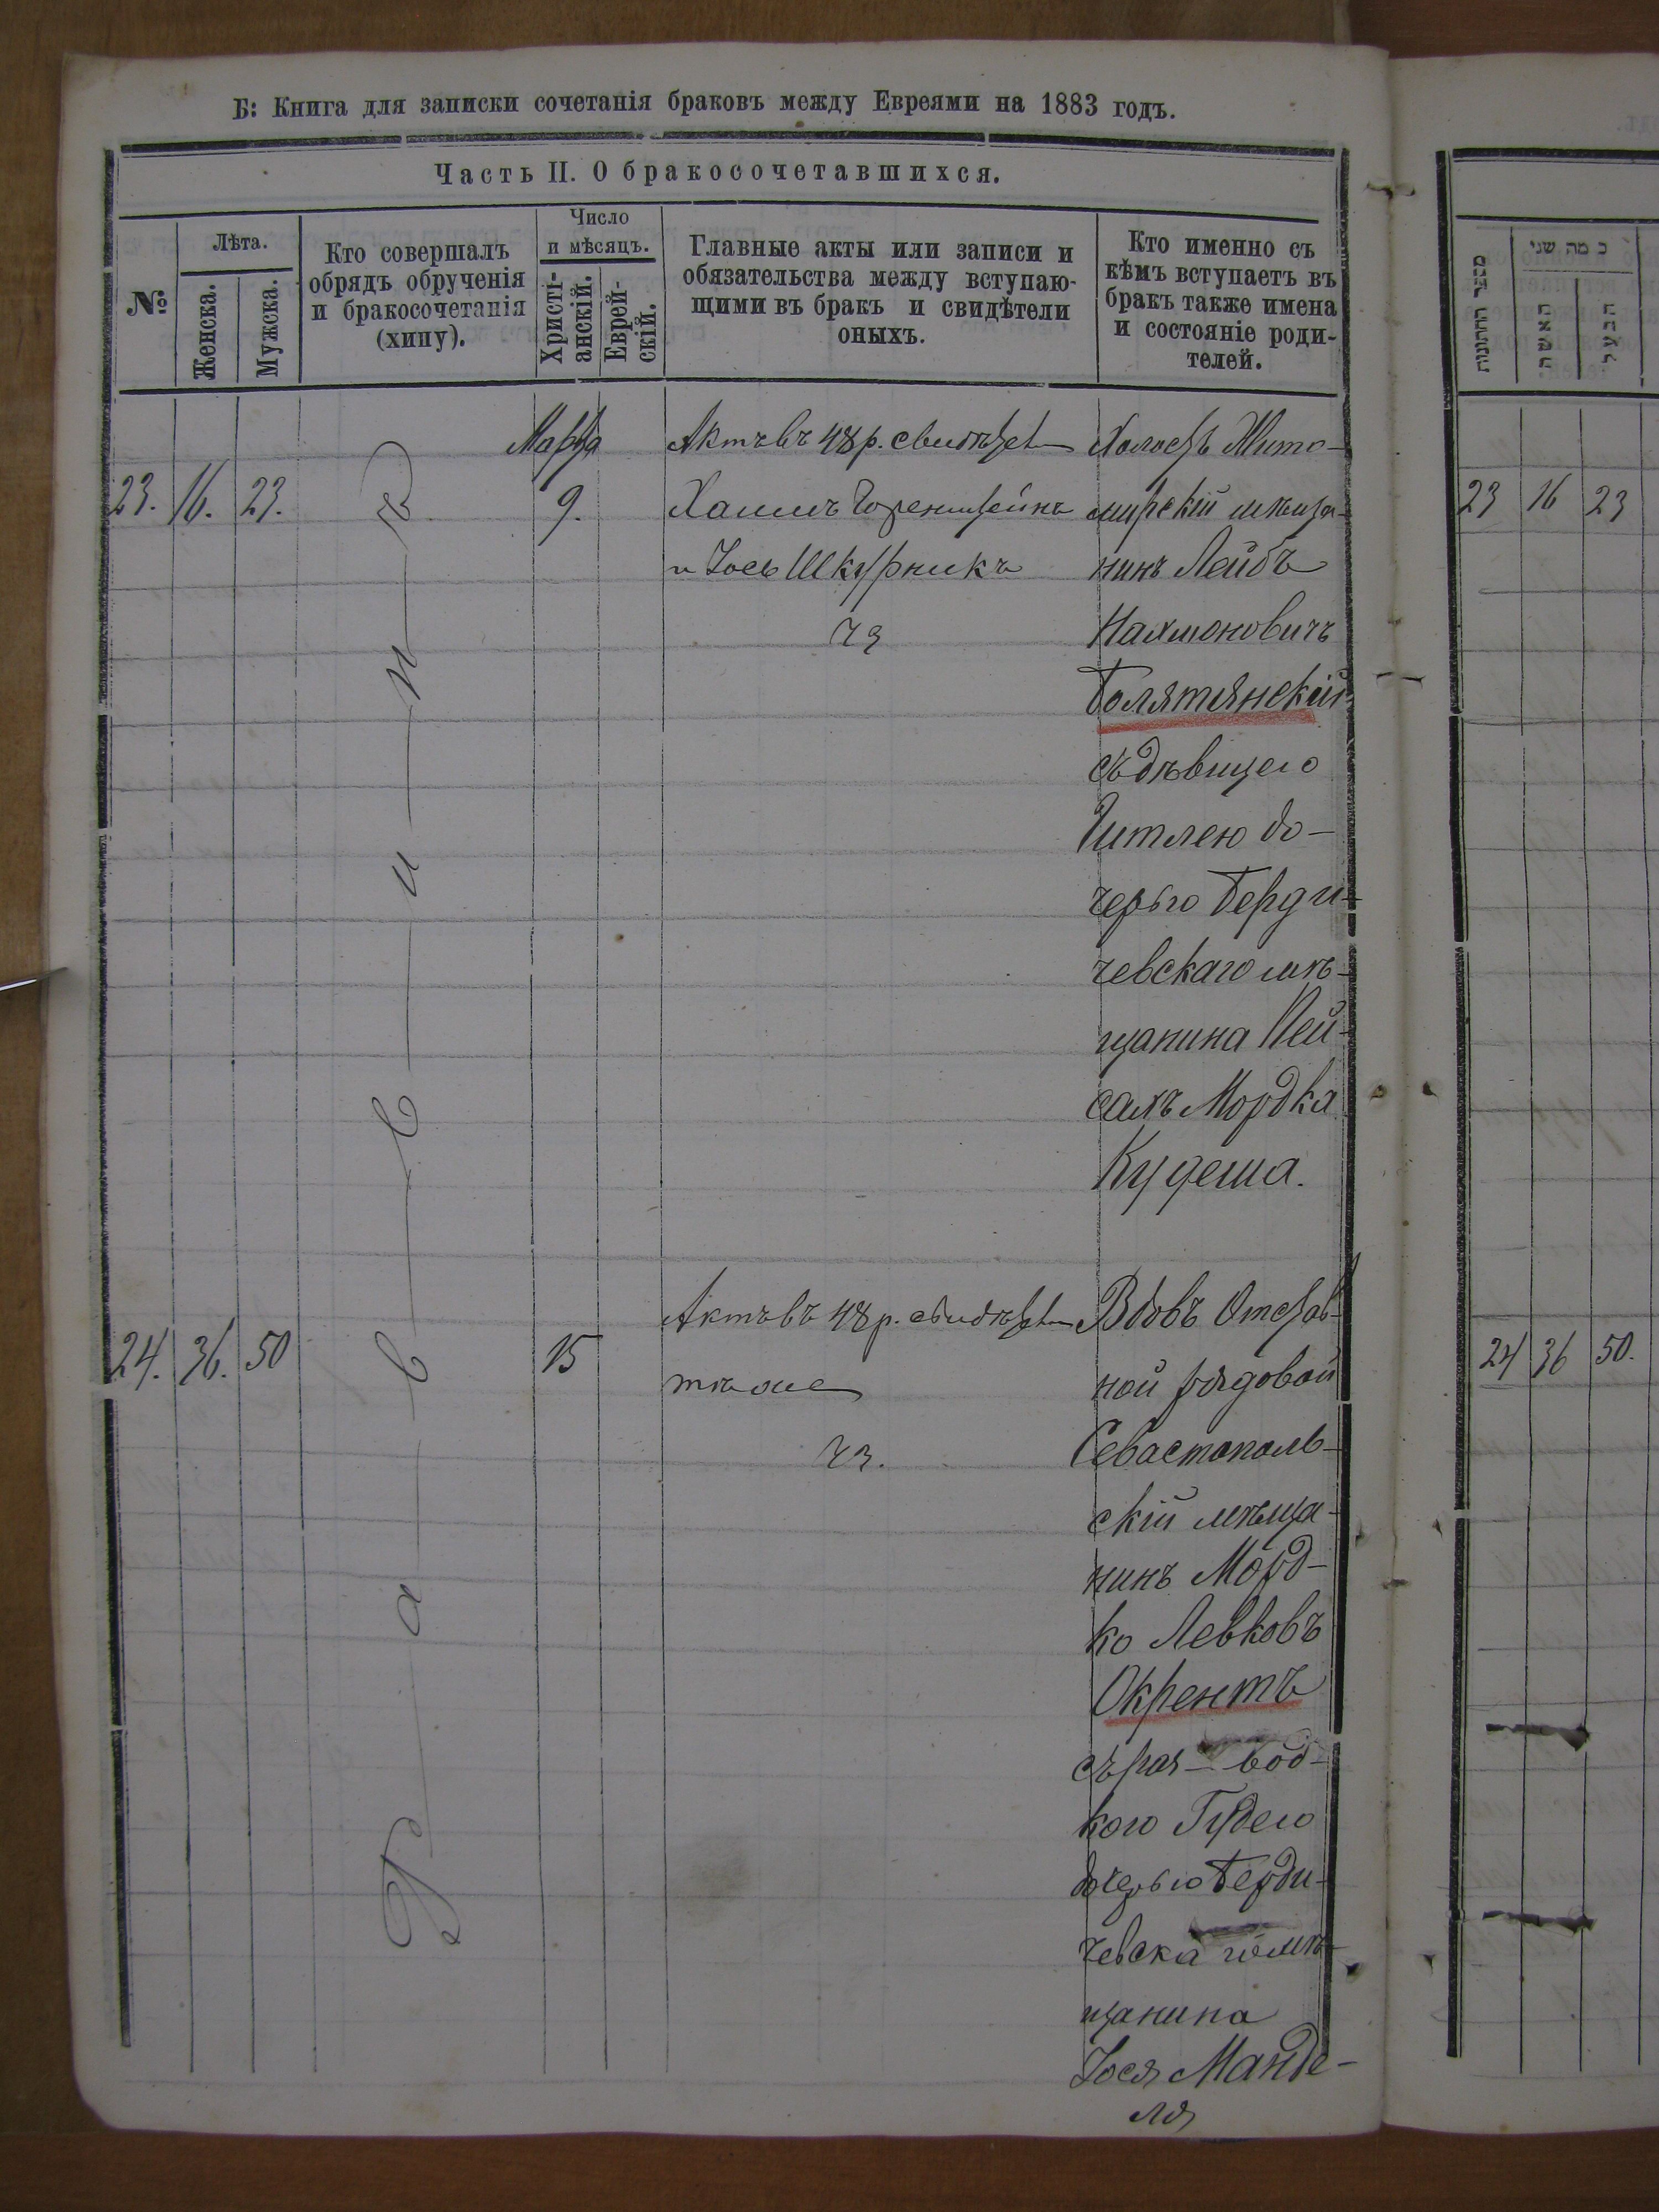 Б: Книга для записки сочетанія браковъ между Евреями на 1883 годъ.
Часть II. О бракосочетавшихся.
№
Лѣта.
Женска.
Мужска.
Кто совершалъ
обрядъ обрученія
и бракосочетанія
(хипу).
Число
и мѣсяцъ.
Христі-
анскій.
Еврей-
скій.
Главные акты или записи и
обязательства между вступаю-
щими въ бракъ и свидѣтели
оныхъ.
Кто именно съ
кѣмъ вступаетъ въ
бракъ также имена
и состояніе роди-
телей.
Раввинъ
Марта
23. 16. 23. 9.
Актъ въ 48 р. свидѣтет
Хаимъ Горенштейнъ
и Іось Шкурникъ
ЧЗ
Холостъ Жито-
мирскій мѣща-
нинъ Лейбъ
Нахмоновичъ
Болятянскій
съ дѣвицею
Гитлею до-
черью Берди-
чевскаго мѣ-
щанина Пей-
сахъ Мордка
Кудеша.
24. 36. 50 15
Актъ въ 48 р. свидѣтет
тѣ же
ЧЗ.
Вдовъ Отстав-
ной рядовой
Севастополь-
скій мѣща-
нинъ Морд-
ко Левковъ
Окрентъ
съ раз- вод-
кою Гудею
дочерью Берди-
чевскаго мѣ-
щанина
Іося Манде-
ля
מספר החתונות
כמה שני
האשה
הבעל
23 16 23
24 36 50.